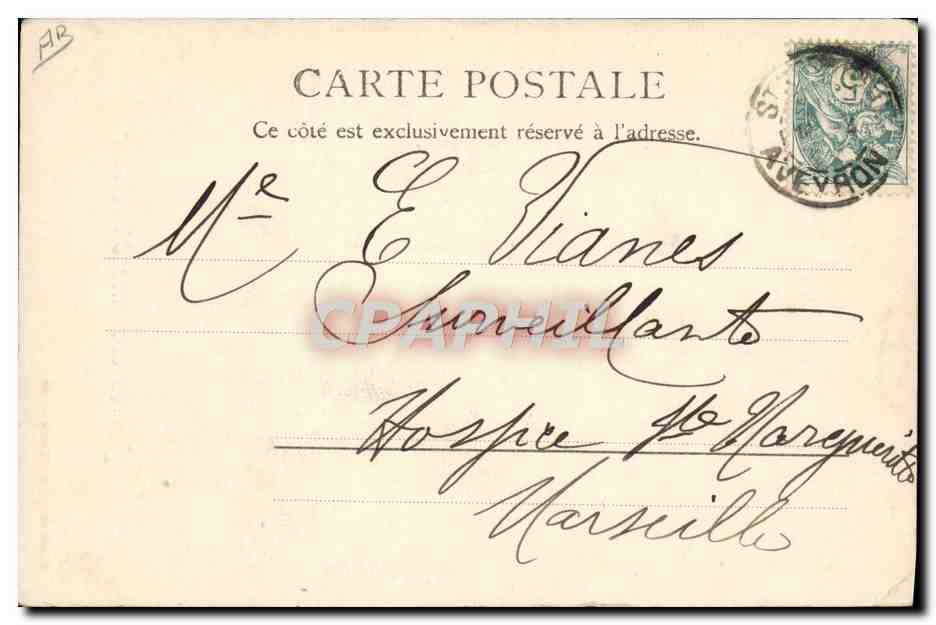 AB
CARTE POSTALE
Ce côté est exclusivement réservé à l'adresse.
5
ST
AVEYRON
Me E Vianes
Surveillante
CPAPHIL
Hospice Ste Marguerite
Marseille